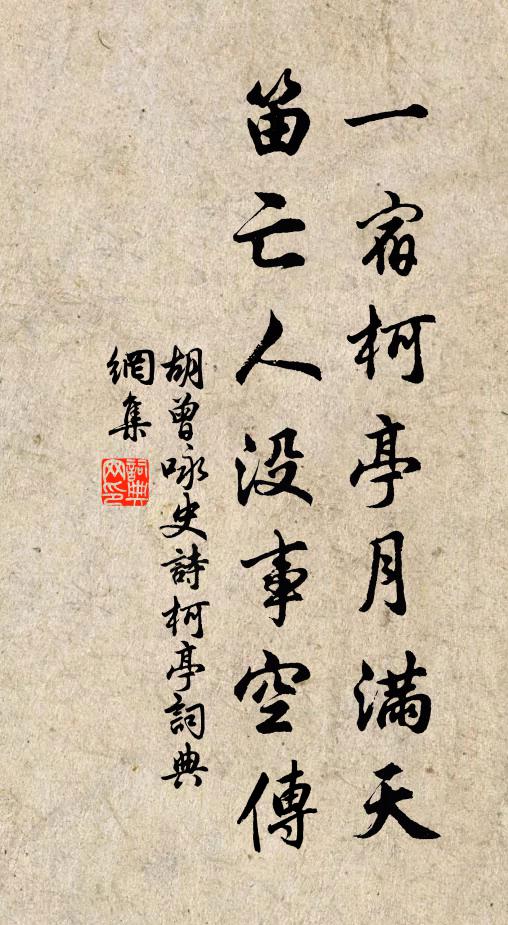 一宿柯亭月滿天
笛亡人没事空傳
胡曾咏史詩柯亭詞典
網集
詞典
网印